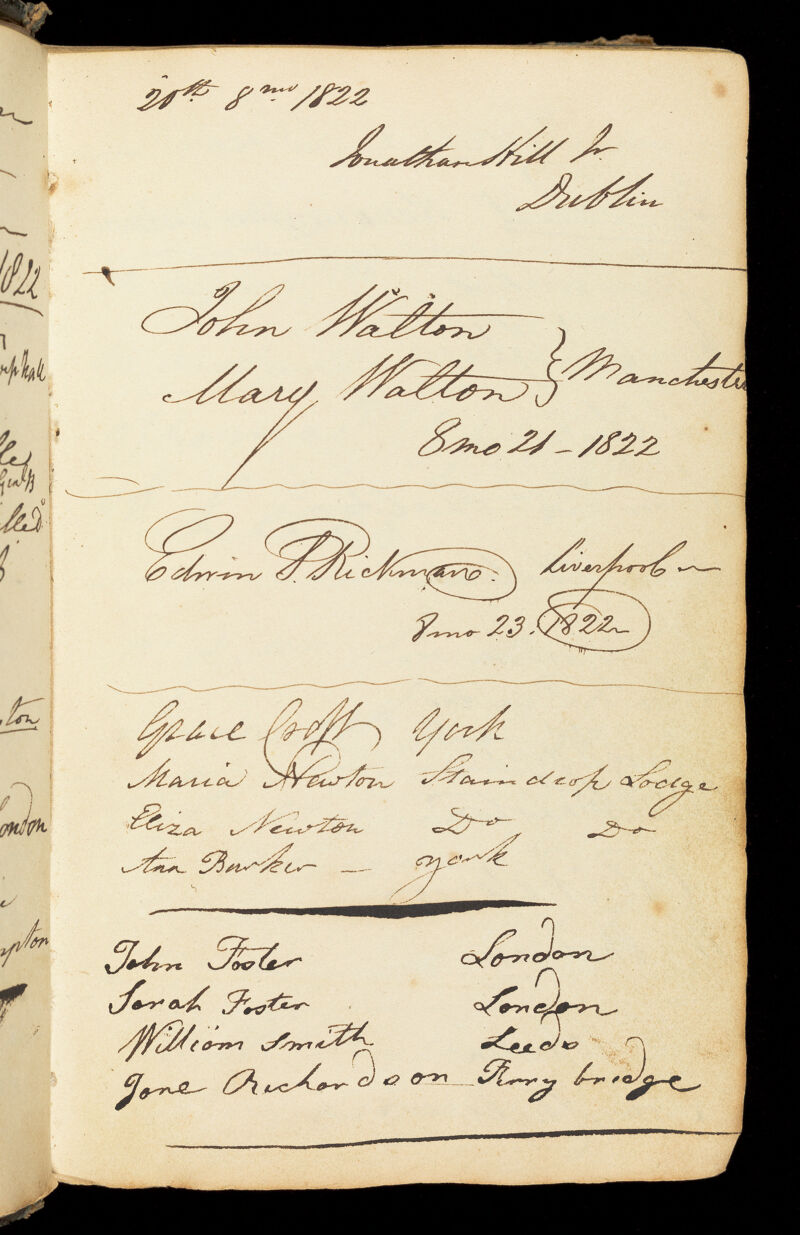 20th 8 mo 1822
Jonathan Hill Jr
Dublin
John Walton
Mary Walton } Manchester
8 mo 21 - 1822
Edwin P. Rickman. Liverpool
8 mo 23. 1822
Grace Croft York
Maria Newton Staindrop Lodge
Eliza Newton Do Do
Ann Barker - York
John Foster London
Sarah Foster London
William Smith Leeds
Jane Richardson Ferry bridge
1822
ondon